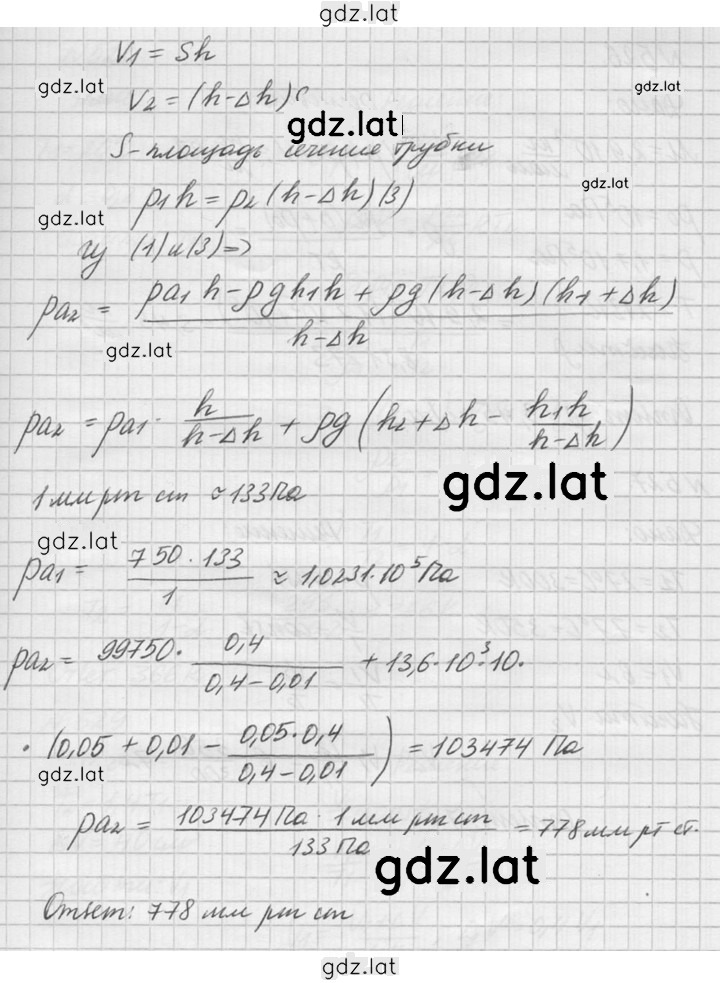 gdz.lat
V1 = Sh
gdz.lat
gdz.lat
V2 = (h-Δh)
gdz.lat
S-площадь сечение трубки
gdz.lat
p1h = p2 (h-Δh) (3)
gdz.lat
(1) и (3) =>
pa2 = (pa1 h - ρgh1h + ρg (h-Δh) (h1+Δh)) / (h-Δh)
gdz.lat
pa2 = pa1 · h / (h-Δh) + ρg (h2 + Δh - h1h / (h-Δh))
gdz.lat
1 мм рт ст ≈ 133 Па
gdz.lat
pa1 = (750 · 133) / 1 ≈ 1,0231·10⁵ Па
pa2 = 99750 · 0,4 / (0,4-0,01) + 13,6·10³·10·
· (0,05 + 0,01 - (0,05·0,4) / (0,4-0,01)) = 103474 Па
gdz.lat
pa2 = (103474 Па · 1 мм рт ст) / 133 Па = 778 мм рт ст.
gdz.lat
Ответ: 778 мм рт ст
gdz.lat